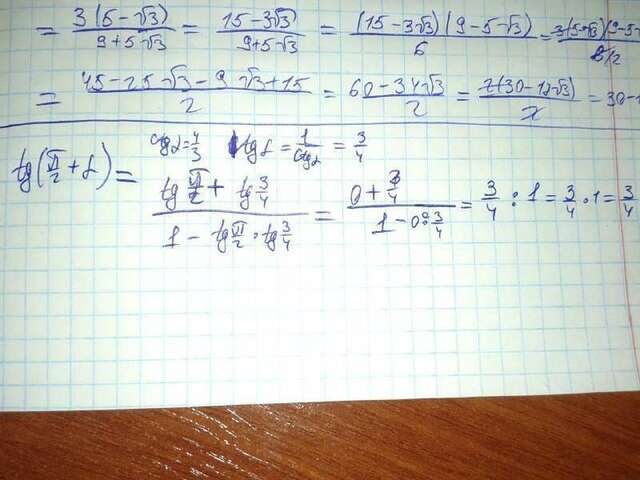 = 3(5-√3) / 9+5√3 = 15-3√3 / 9+5√3 = (15-3√3)(9-5√3) / 6 =
= 45-25√3-9√3+15 / 2 = 60-34√3 / 2 = = 30-
ctg α = 4/3 tg α = 1/ctg α = 3/4
tg(π/2 + α) = tg π/2 + tg 3/4 / 1 - tg π/2 · tg 3/4 = 0 + 3/4 / 1 - 0 · 3/4 = 3/4 : 1 = 3/4 · 1 = 3/4